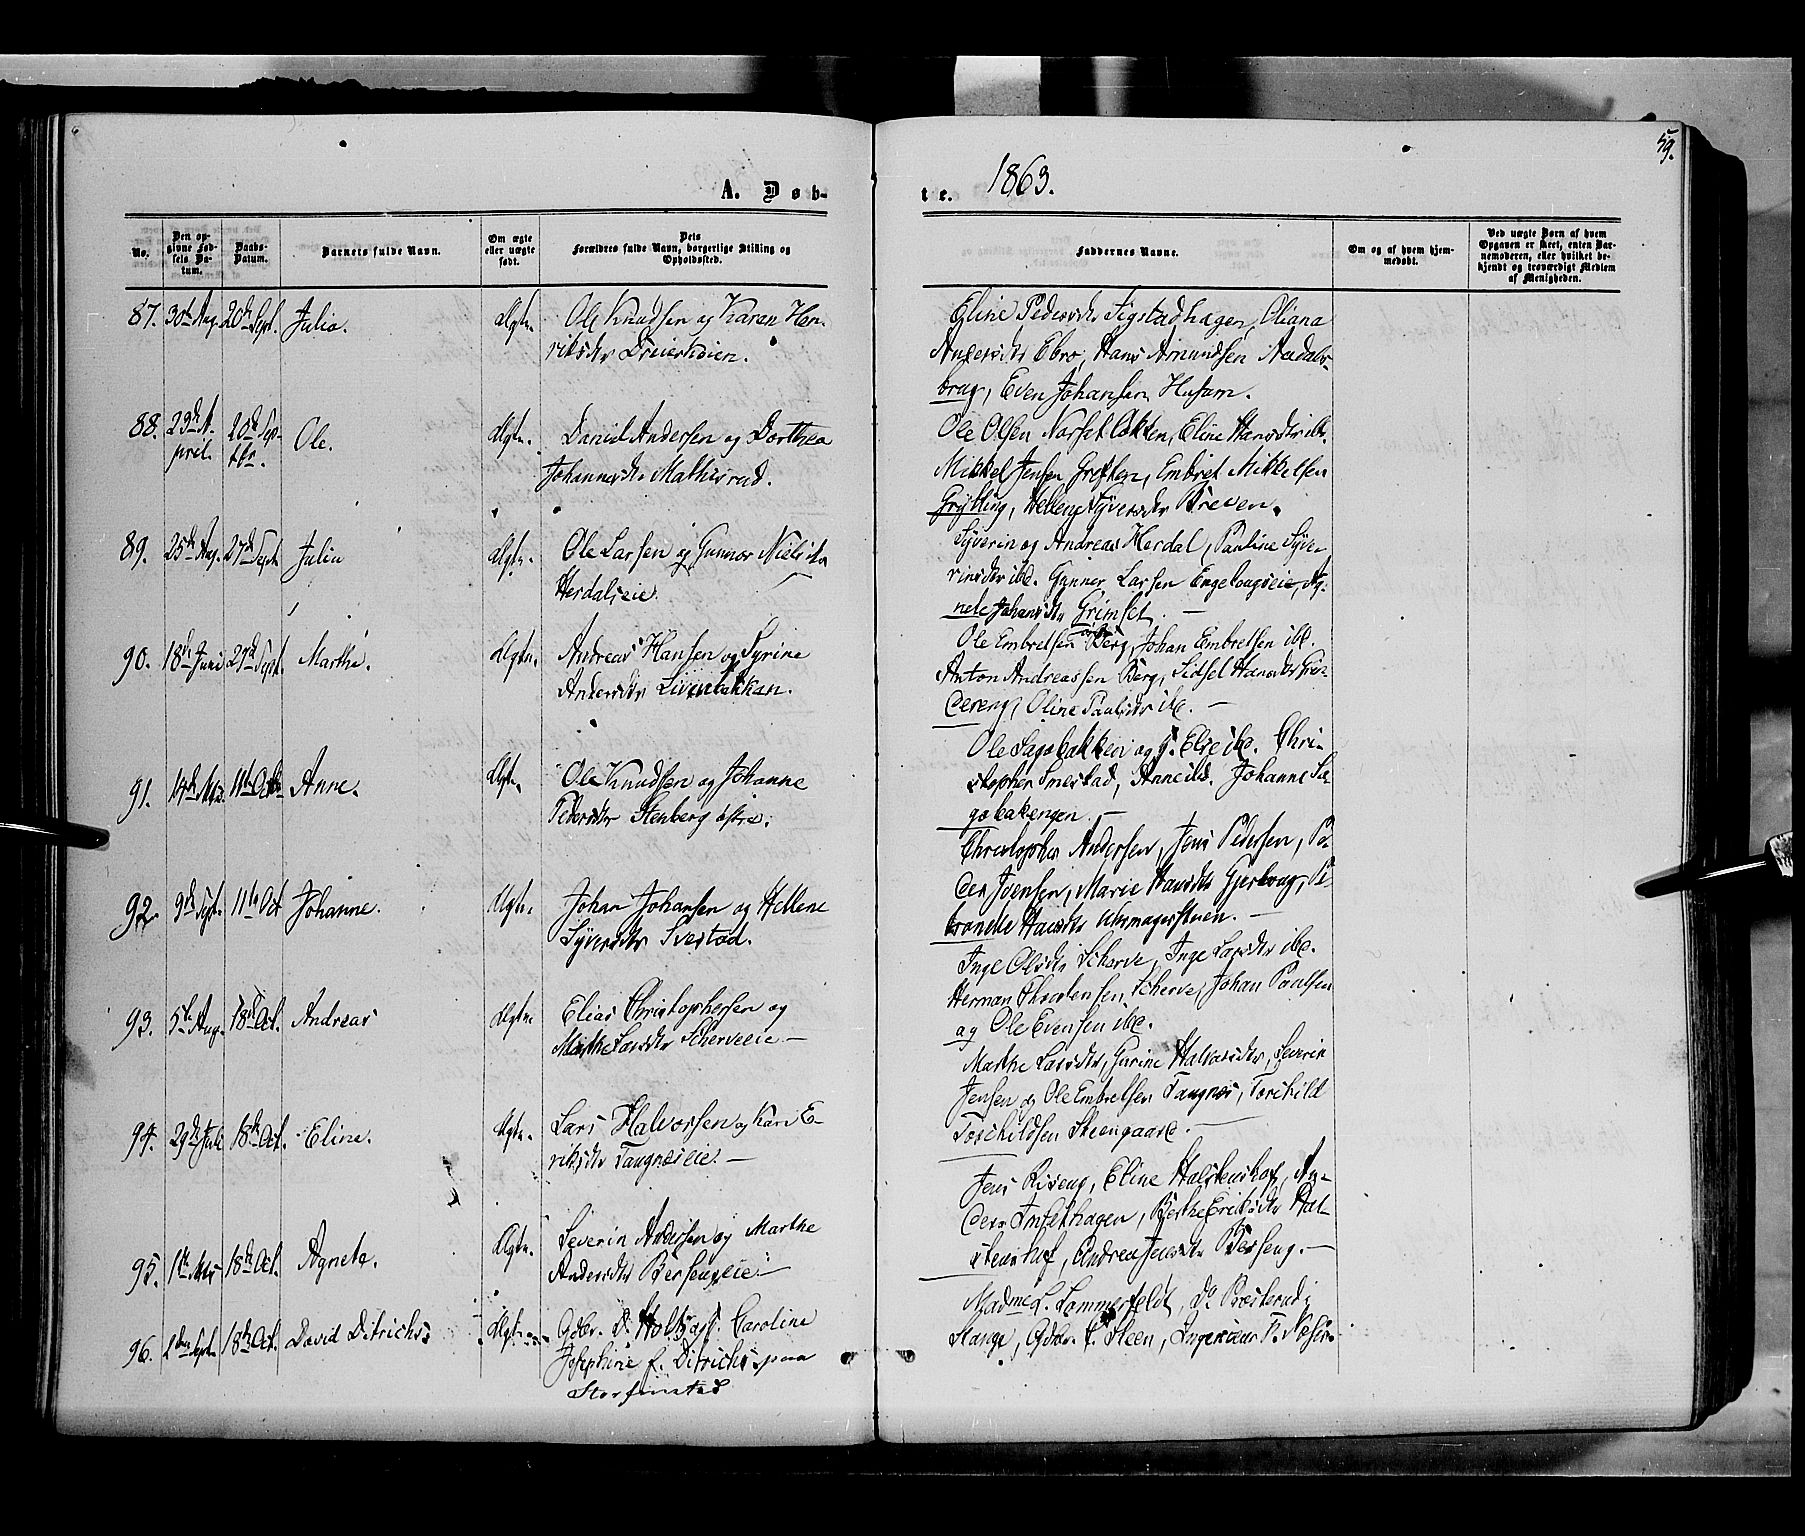 59.
A. Døb-
te. 1863.
No.
Den opgivne Fødsels Datum.
Daabs-Datum.
Barnets fulde Navn.
Om ægte eller uægte født.
Dets Forældres fulde Navn, borgerlige Stilling og Opholdssted.
Faddernes Navne.
Om og af hvem hjemmedøbt.
Ved uægte Børn af hvem Opgaven er skeet, enten Barnemoderen, eller hvilket bekjendt og troværdigt Medlem af Menigheden.
87. 30te Aug. 20de Sept. Julia. Ægte. Ole Knudsen og Karen Hen-
riksdr
Eline Pedersdr Sigstadhagen, Oliana
Andersdr Ebro, Hans Amundsen Aadals-
brug, Even Johansen Husom.
88. 23de A- 20de Sep-
pril. tbr. Ole. Ægte. Daniel Andersen og Dorthea
Johannesdr Mathisrud.
Ole Olsen Norsetløkken, Eline Hansdr ibd.
Mikkel Jensen Greften, Embret Mikkelsen
Grytting, Hellene Syversdr Breven.
89. 25de Aug. 27de Sept. Julia Ægte. Ole Larsen og Gunnor Nielsdr
Herdalseie.
Syverin og Andreas Herdal, Pauline Syve-
rinsdr ibd. Gunner Larsen Engelaugseie, Ag-
nete Johansdr Grimset.
90. 18de Juni 27de Sept. Marthe. Ægte. Andreas Hansen og Syrine
Andersdr
Ole Embretsen Berg, Johan Embretsen ibd.
Anton Andreassen Berg, Sidsel Hansdr
Oline Paulsdr ibd.
91. 14de 11te Oct. Anne. Ægte. Ole Knudsen og Johanne
Pedersdr Stenberg østre.
Ole Sagobakken og G. Else ibd. Chri-
stopher Smestad, Anne ibd. Johanne Sa-
gobakengen.
92. 9de Sept. 11te Oct Johanne. Ægte. Johan Johansen og Hellene
Syversdr Svestad.
Christopher Andersen, Jens Pedersen, Pe-
der Jensen, Marie Hansdr Gjerlaug, Pe-
tronelle Hansdr
93. 5te Aug. 18de Oct. Andreas Ægte Elias Christophersen og
Marthe Larsdr Scherveeie
Inge Olsdr Scherve, Inge Larsdr ibd.
Herman Thorstensen Scherve, Johan Paulsen
og Ole Evensen ibd.
94. 29de Juli 18de Oct. Eline. Ægte. Lars Halvorsen og Kari E-
riksdr Tangnæseie.
Marthe Larsdr, Gurine Halvorsdr, Severin
Jensen og Ole Embretsen Tangnæs, Torchild
Torchildsen Steengaard.
95. 1te 18de Oct. Agnete. Ægte. Severin Andersen og Marthe
Andersdr Bersengeie.
Jens Riseng, Eline Halstenshof, An-
ders Insethagen, Berthe Eriksdr Hal-
stenshof, Andrea Jensdr Berseng.
96. 2den Sept. 18de Oct. David Ditrichs Ægte. Gdbr. D. Holtz og Caroline
Josephine f. Ditrichs paa
Storfinstad
Madme L. Lammerfeldt, Do Præsterud i
Stange, Gdbr. Steen, Ingeniør